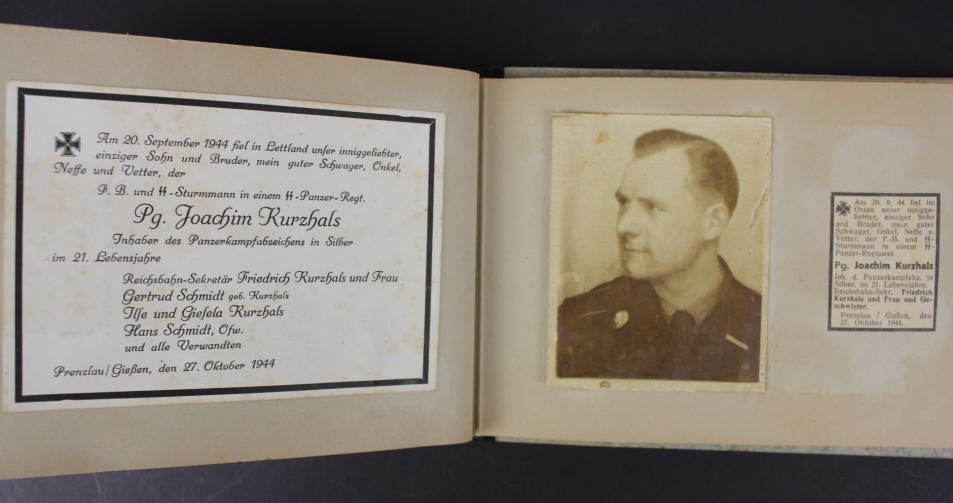 Am 20. September 1944 fiel in Lettland unser inniggeliebter,
einziger Sohn und Bruder, mein guter Schwager, Onkel,
Neffe und Vetter, der
F. B. und ϟϟ-Sturmmann in einem ϟϟ-Panzer-Regt.
Pg. Joachim Kurzhals
Inhaber des Panzerkampfabzeichens in Silber
im 21. Lebensjahre
Reichsbahn-Sekretär Friedrich Kurzhals und Frau
Gertrud Schmidt geb. Kurzhals
Ilse und Giesela Kurzhals
Hans Schmidt, Ofw.
und alle Verwandten
Prenzlau/Gießen, den 27. Oktober 1944
Am 20. 9. 44 fiel im
Osten unser innigge-
liebter, einziger Sohn
und Bruder, mein guter
Schwager, Onkel, Neffe u.
Vetter, der F.-B. und ϟϟ-
Sturmmann in einem ϟϟ-
Panzer-Regiment
Pg. Joachim Kurzhals
Inh. d. Panzerkampfabz. in
Silber, im 21. Lebensjahre.
Reichsbahn-Sekr. Friedrich
Kurzhals und Frau und Ge-
schwister.
Prenzlau / Gießen, den
27. Oktober 1944.